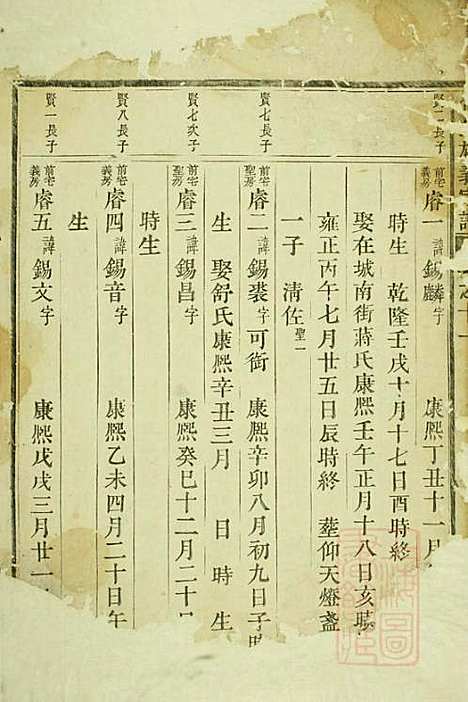 族義
賢二長子
前宅義房 睿一 諱錫麟字 康熙丁丑十一月
時生 乾隆壬戌十月十七日酉時終
娶在城南街蔣氏康熙壬午正月十八日亥時
雍正丙午七月廿五日辰時終 塟仰天燈盞
一子 清佐聖一
賢七長子
前宅聖房 睿二 諱錫裘字可衡 康熙辛卯八月初九日子時
生 娶舒氏康熙辛丑三月 日 時生
賢七次子
前宅聖房 睿三 諱錫昌字 康熙癸巳十二月二十
時生
賢八長子
前宅義房 睿四 諱錫音字 康熙乙未四月二十日午
生
賢一長子
前宅義房 睿五 諱錫文字 康熙戊戌三月廿一
圖